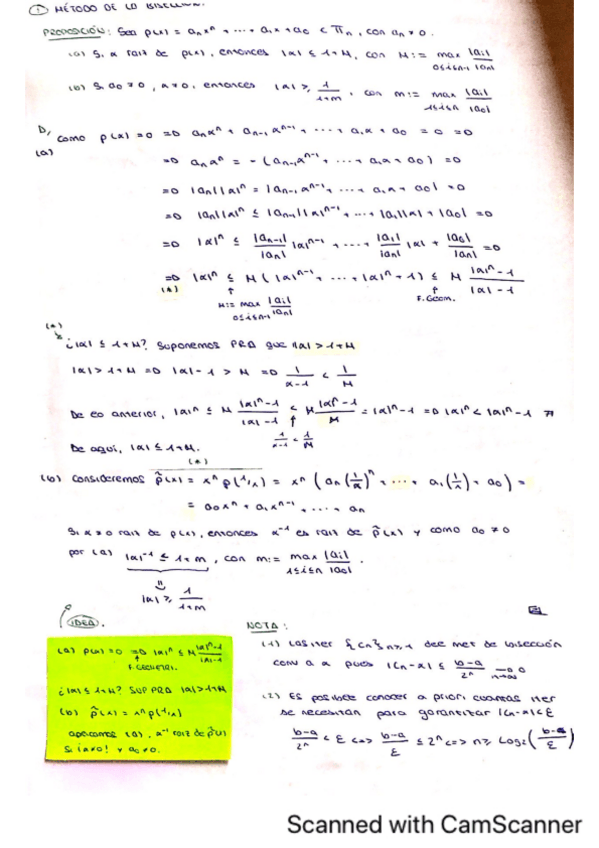 ① MÉTODO DE LA BISECCIÓN.
PROPOSICIÓN: Sea p(x) = aₙxⁿ + ... + a₁x + a₀ ∈ Πₙ, con aₙ ≠ 0.
(a) Si α raíz de p(x), entonces |α| ≤ 1+M, con M := max |aᵢ|/|aₙ| 0≤i≤n-1
(b) Si a₀ ≠ 0, α ≠ 0, entonces |α| ≥ 1/(1+m), con m := max |aᵢ|/|a₀| 1≤i≤n
D/
(a) Como p(α) = 0 => aₙαⁿ + aₙ₋₁αⁿ⁻¹ + ... + a₁α + a₀ = 0 =>
=> aₙαⁿ = -(aₙ₋₁αⁿ⁻¹ + ... + a₁α + a₀) =>
=> |aₙ||α|ⁿ = |aₙ₋₁αⁿ⁻¹ + ... + a₁α + a₀| =>
=> |aₙ||α|ⁿ ≤ |aₙ₋₁||α|ⁿ⁻¹ + ... + |a₁||α| + |a₀| =>
=> |α|ⁿ ≤ |aₙ₋₁|/|aₙ| |α|ⁿ⁻¹ + ... + |a₁|/|aₙ| |α| + |a₀|/|aₙ| =>
=> |α|ⁿ ≤ M (|α|ⁿ⁻¹ + ... + |α| + 1) ≤ M (|α|ⁿ-1)/(|α|-1)
(*) ↑ ↑
M := max |aᵢ|/|aₙ| 0≤i≤n-1 F. Geom.
(*)
¿|α| ≤ 1+M? Suponemos PRA que |α| > 1+M
|α| > 1+M => |α|-1 > M => 1/(α-1) < 1/M
De lo anterior, |α|ⁿ ≤ M (|α|ⁿ-1)/(|α|-1) < M (|α|ⁿ-1)/M = |α|ⁿ-1 => |α|ⁿ < |α|ⁿ-1 !!
↑ 1/(α-1) < 1/M
De aquí, |α| ≤ 1+M.
(*)
(b) Consideremos p̃(x) = xⁿ p(1/x) = xⁿ (aₙ(1/x)ⁿ + ... + a₁(1/x) + a₀) =
= a₀xⁿ + a₁xⁿ⁻¹ + ... + aₙ
Si α ≠ 0 raíz de p(x), entonces α⁻¹ es raíz de p̃(x) y como a₀ ≠ 0
por (a) |α|⁻¹ ≤ 1+m, con m := max |aᵢ|/|a₀| 1≤i≤n.
|α| ≥ 1/(1+m)
IDEA.
(a) p(α)=0 => |α|ⁿ ≤ M (|α|ⁿ-1)/(|α|-1)
↑ F. GEOMETRI.
¿|α| ≤ 1+M? SUP PRA |α| > 1+M
(b) p̃(x) = xⁿ p(1/x)
aplicamos (a), α⁻¹ raíz de p̃(x)
Si α≠0! y a₀≠0.
NOTA:
(1) Las iter {cₙ}n≥1 del met de bisección
conv a α pues |cₙ-α| ≤ (b-a)/2ⁿ → 0 n→∞
(2) Es posible conocer a priori cuantas iter
se necesitan para garantizar |cₙ-α| < ε
(b-a)/2ⁿ < ε <=> (b-a)/ε ≤ 2ⁿ <=> n ≥ Log₂((b-a)/ε)
Scanned with CamScanner